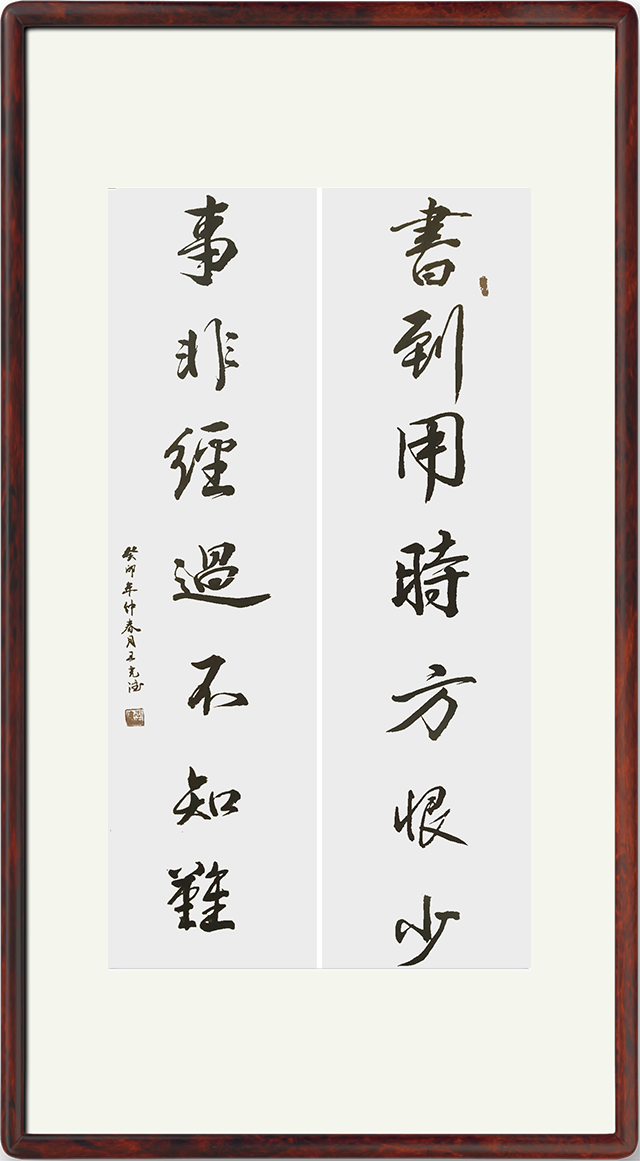 書到用時方恨少
事非經過不知難
癸卯年仲春月王克